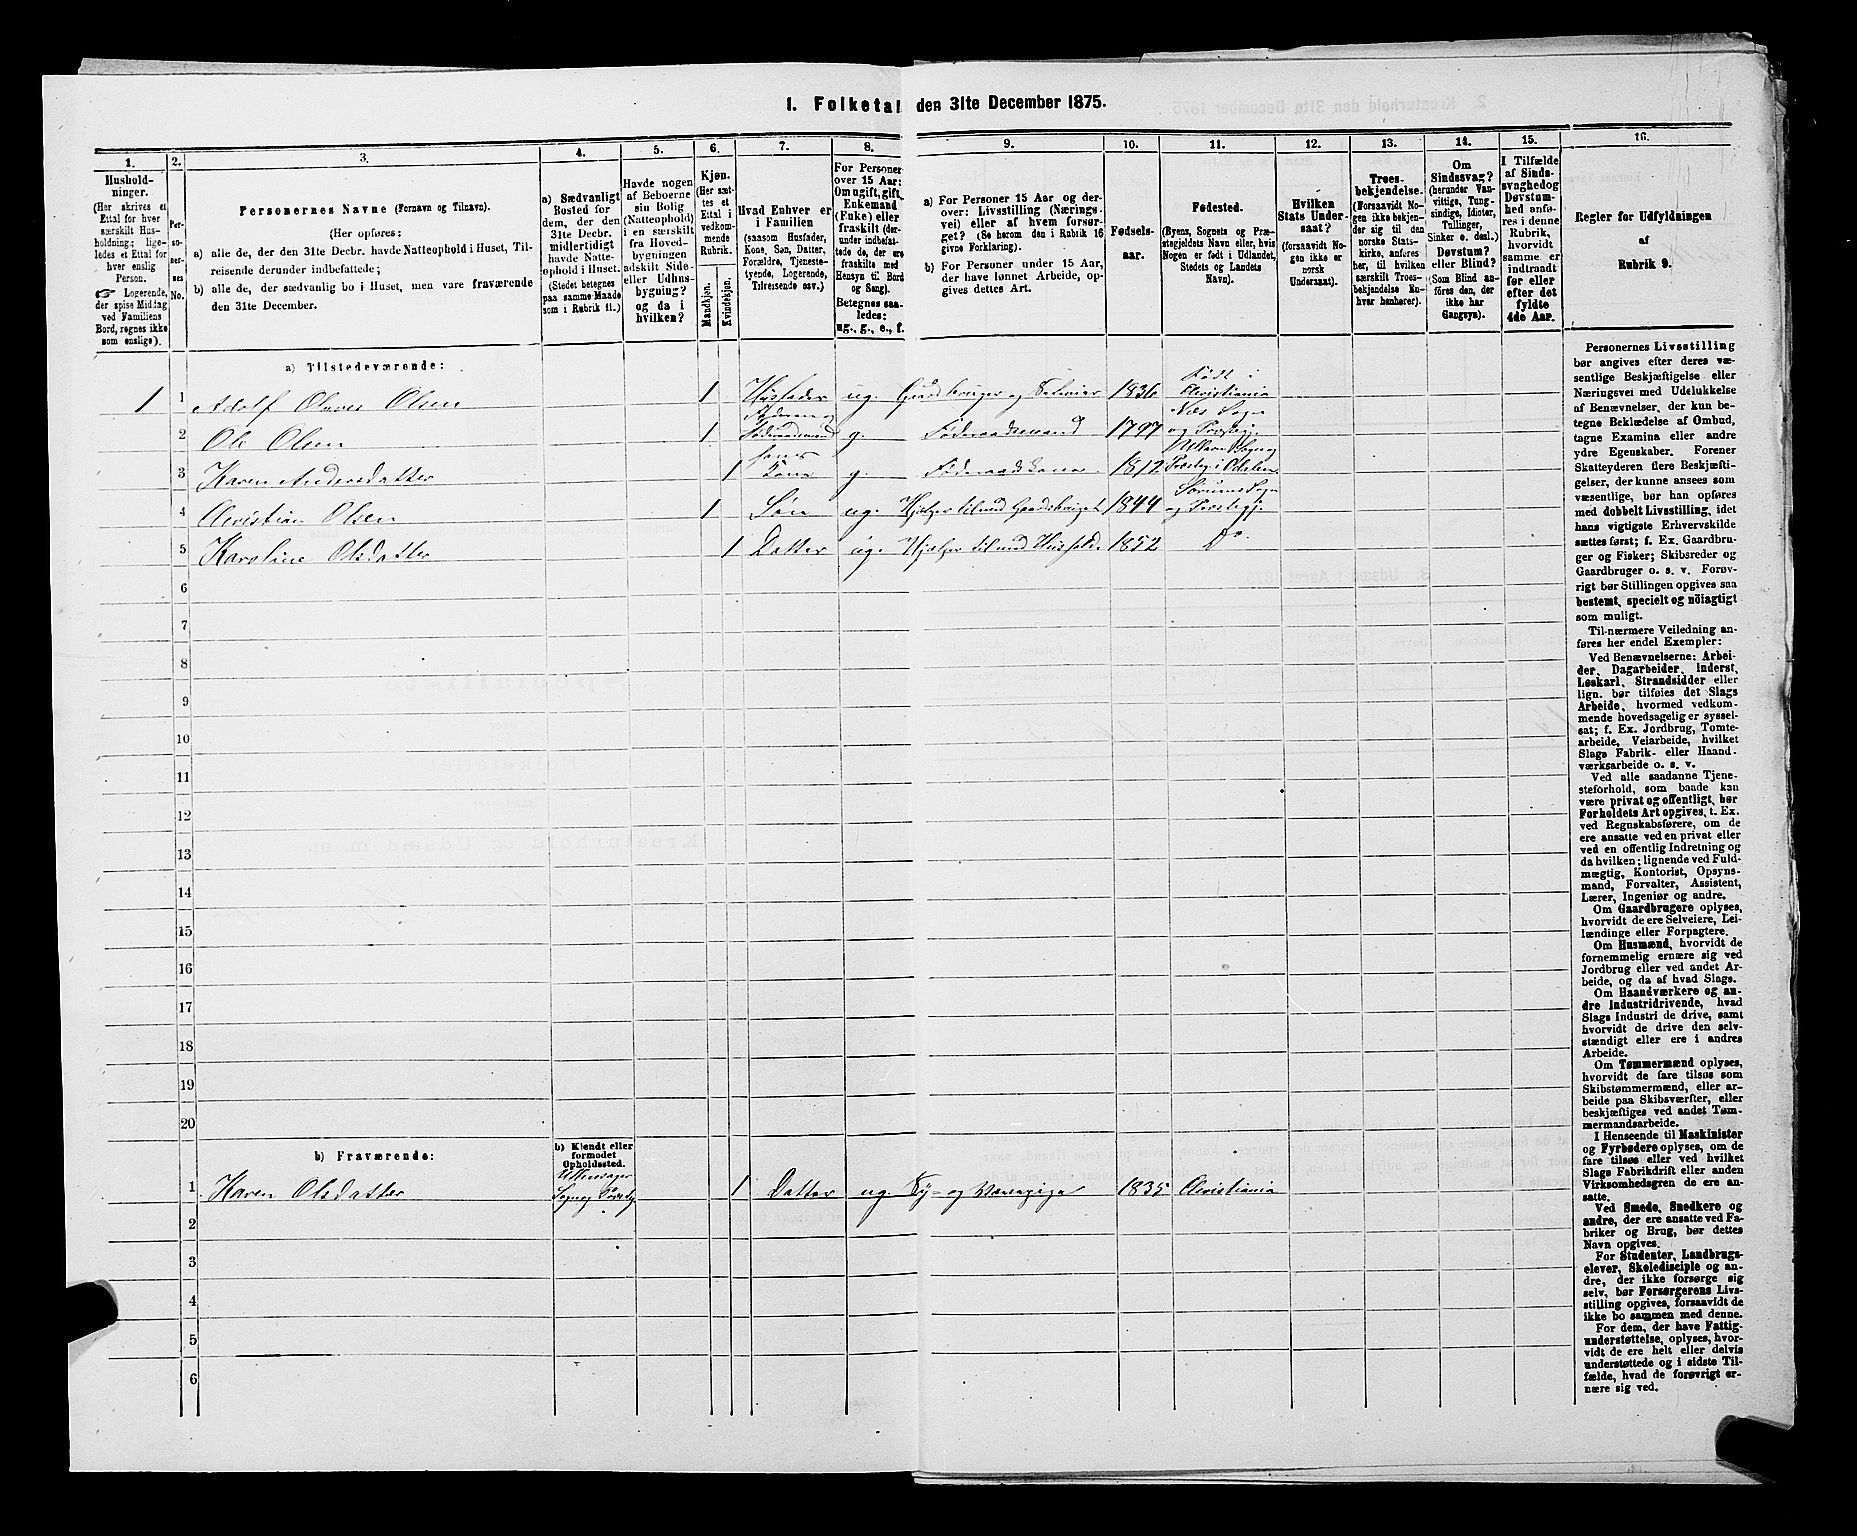 I. Folketal den 31te December 1875.
1. 2. 3. 4. 5. 6. 7. 8. 9. 10. 11. 12. 13. 14. 15. 16.
Hushold-
ninger.
(Her skrives et
Ettal for hver
særskilt Hus-
holdning; lige-
ledes et Ettal for
hver enslig
Person.
☞ Logerende,
der spise Middag
ved Familiens
Bord, regnes ikke
som enslige).
Per-
so-
ner-
nes
No.
Personernes Navne (Fornavn og Tilnavn).
(Her opføres:
a) alle de, der den 31te Decbr. havde Natteophold i Huset, Til-
reisende derunder indbefattede;
b) alle de, der sædvanlig bo i Huset, men vare fraværende
den 31te December.
a) Sædvanligt
Bosted for
dem, der den
31te Decbr.
midlertidigt
havde Natte-
ophold i Huset.
(Stedet betegnes
paa samme Maade
som i Rubrik 11.)
Havde nogen
af Beboerne
sin Bolig
(Natteophold)
i en særskilt
fra Hoved-
bygningen
adskilt Side-
eller Udhus-
bygning?
og da i
hvilken?
Kjøn.
(Her sæt-
tes et
Ettal i
vedkom-
mende
Rubrik.)
Mandkjøn.
Kvindekjøn.
Hvad Enhver er
i Familien
(saasom Husfader,
Kone, Søn, Datter,
Forældre, Tjeneste-
tyende, Logerende,
Tilreisende osv.)
For Personer
over 15 Aar:
Om ugift, gift,
Enkemand
(Enke) eller
fraskilt (der-
under indbefat-
tede de, der ere
fraskilte med
Hensyn til Bord
og Seng).
Betegnes saa-
ledes:
ug., g., e., f.
a) For Personer 15 Aar og der-
over: Livsstilling (Nærings-
vei) eller af hvem forsør-
get? (Se herom den i Rubrik 16
givne Forklaring).
b) For Personer under 15 Aar,
der have lønnet Arbeide, op-
gives dettes Art.
Fødsels-
aar.
Fødested.
(Byens, Sognets og Præ-
stegjeldets Navn eller, hvis
Nogen er født i Udlandet,
Stedets og Landets
Navn).
Hvilken
Stats Under-
saat?
(forsaavidt No-
gen ikke er
norsk
Undersaat).
Troes-
bekjendelse.
(Forsaavidt No-
gen ikke bekjen-
der sig til den
norske Stats-
kirke, anføres
her, til hvilken
særskilt Troes-
bekjendelse En-
hver henhører).
Om
Sindssvag?
(herunder Van-
vittige, Tung-
sindige, Idioter,
Tullinger,
Sinker o. desl.)
Døvstum?
eller Blind?
(Som Blind an-
føres den, der
ikke har
Gangsyn).
I Tilfælde
af Sinds-
svaghed og
Døvstum-
hed anfø-
res i denne
Rubrik,
hvorvidt
samme er
indtraadt
før eller
efter det
fyldte
4de Aar.
Regler for Udfyldningen
af
Rubrik 9.
a) Tilstedeværende:
1 1 Adolf Olaves Olsen 1 Husfader ug. Gaardbruger og Selveier 1836 Født i Christiania
2 Ole Olsen 1 g. Føderaadsmand 1797 Næs Sogn og Præstegj.
3 Karen Andersdatter 1 Kone g. Føderaadskone 1812
4 Christian Olsen 1 Søn ug. Hjælper til med Gaardsbruget 1844 Sørums Sogn og Præstegj.
5 Karoline Olsdatter 1 Datter ug. Hjælper til med Husholdn. 1852 Do.
6
7
8
9
10
11
12
13
14
15
16
17
18
19
20
b) Fraværende:
b) Kjendt eller
formodet
Opholdssted.
1 Karen Olsdatter Ullensager Sogn og Præstegj. 1 Datter ug. Sy- og Væverpige 1835 Christiania
2
3
4
5
6
Personernes Livsstilling
bør angives efter deres væ-
sentlige Beskjæftigelse eller
Næringsvei med Udelukkelse
af Benævnelser, der kun be-
tegne Beklædelse af Ombud,
tagne Examina eller andre
ydre Egenskaber. Forener
Skatteyderen flere Beskjæfti-
gelser, der kunne ansees som
væsentlige, bør han opføres
med dobbelt Livsstilling, idet
hans vigtigste Erhvervskilde
sættes først; f. Ex. Gaardbru-
ger og Fisker; Skibsreder og
Gaardbruger o. s. v. Forøv-
rigt bør Stillingen opgives saa
bestemt, specielt og nöiagtigt
som muligt.
Til nærmere Veiledning an-
føres her endel Exempler:
Ved Benævnelserne: Arbei-
der, Dagarbeider, Inderst,
Løskarl, Strandsidder eller
lign. bør tilføies det Slags
Arbeide, hvormed vedkom-
mende hovedsagelig er syssel-
sat; f. Ex. Jordbrug, Tomte-
arbeide, Veiarbeide, hvilket
Slags Fabrik- eller Haand-
værksarbeide o. s. v.
Ved alle saadanne Tjene-
steforhold, som baade kan
være privat og offentligt, bør
Forholdets Art opgives, t. Ex.
ved Regnskabsførere, om de
ere ansatte ved en privat eller
ved en offentlig Indretning og
da hvilken; lignende ved Fuld-
mægtig, Kontorist, Opsyns-
mand, Forvalter, Assistent,
Lærer, Ingeniør og andre.
Om Gaardbrugere oplyses,
hvorvidt de ere Selveiere, Lei-
lændinge eller Forpagtere.
Om Husmænd, hvorvidt de
fornemmelig ernære sig ved
Jordbrug eller ved andet Ar-
beide, og da af hvad Slags.
Om Haandværkere og an-
dre Industridrivende, hvad
Slags Industri de drive, samt
hvorvidt de drive den selv-
stændigt eller ere i andres
Arbeide.
Om Tømmermænd oplyses,
hvorvidt de fare tilsøs som
Skibstømmermænd, eller ar-
beide paa Skibsværfter, eller
beskjæftiges ved andet Tøm-
mermandsarbeide.
I Henseende til Maskinister
og Fyrbødere oplyses, om de
fare tilsøs eller ved hvilket
Slags Fabrikdrift eller anden
Virksomhedsgren de ere an-
satte.
Ved Smede, Snedkere og
andre, der ere ansatte ved Fa-
briker og Brug, bør dettes
Navn opgives.
For Studenter, Landbrugs-
elever, Skoledisciple og an-
dre, der ikke forsørge sig
selv, bør Forsørgerens Livs-
stilling opgives, forsaavidt de
ikke bo sammen med denne.
For dem, der have Fattig-
understøttelse, oplyses, hvor-
vidt de ere helt eller delvis
understøttede og i sidste Til-
fælde, hvad de forøvrigt er-
nære sig ved.